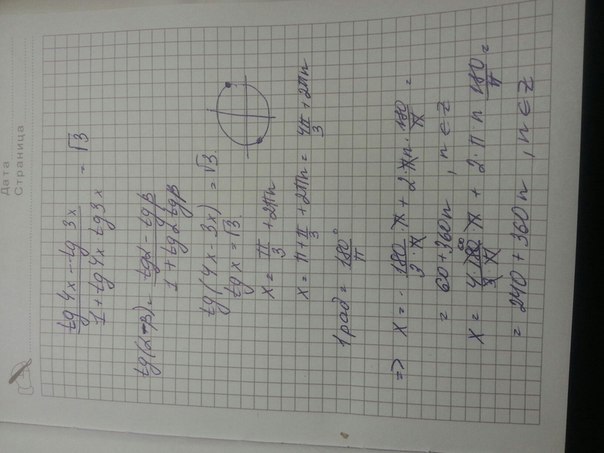 Дата
Страница
tg 4x - tg 3x / 1 + tg 4x tg 3x = √3
tg(α-β) = tgα - tgβ / 1 + tgα tgβ
tg(4x - 3x) = √3
tg x = √3
x = π/3 + 2πn
x = π + π/3 + 2πn = 4π/3 + 2πn
1 рад = 180°/π
=> x = 180/3·π · π + 2·πn · 180/π =
= 60 + 360n, n ∈ Z
x = 4·180/3·π π + 2·πn 180/π =
60
= 240 + 360n, n ∈ Z